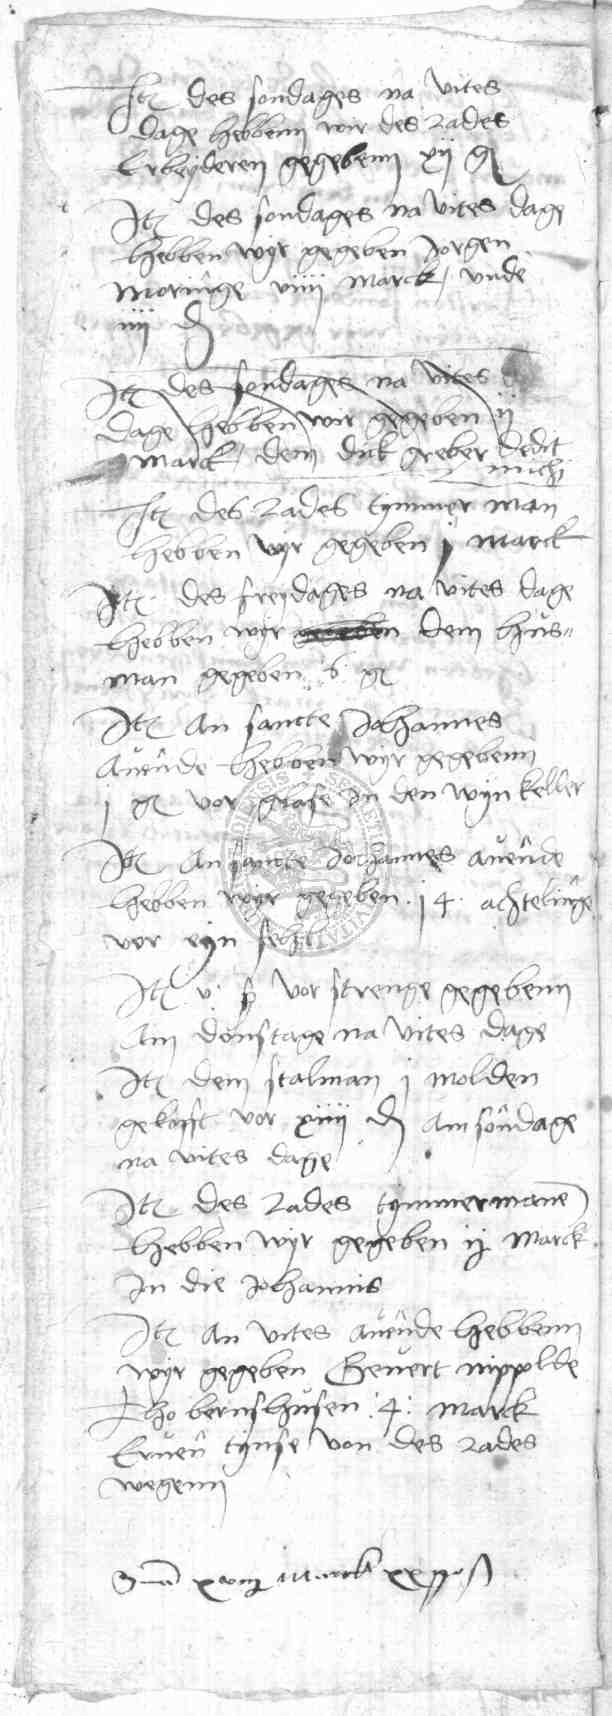 Itē des sondages na vites
dage hebbenn wir des rades
Erbeyderen gegebenn xij gr
Itē des sondages na vites dage
hebben wyr gegeben Jorgen
moringe viiij marck vnde
iiij d
Itē des sondages na vites
dage hebben wir gegeben ij
marck dem dick greber dedit
michi
Itē des rades tymmer man
hebben wyr gegeben j marck
Itē des freydages na vites dage
hebben wyr gegeben dem hus=
man gegeben 6 gr
Itē an sancte Johannes
auende hebben wyr gegebenn
j gr vor glase in den wyn keller
Itē an sancte Johannes auende
hebben wyr gegeben j 4 achtelinge
vor eyn
Itē v ß vor strenge gegebenn
am donstage na vites dage
Itē dem stalman j molden
gekofft vor xiiij d am sondage
na vites dage
Itē des rades tymmermane
hebben wyr gegeben ij marck
in die Johannis
Itē an vites auende hebbenn
wyr gegeben Geuert nippolde
tho bernshusen 4 marck
Eruen tynse von des rades
wegenn
xviij marck xx